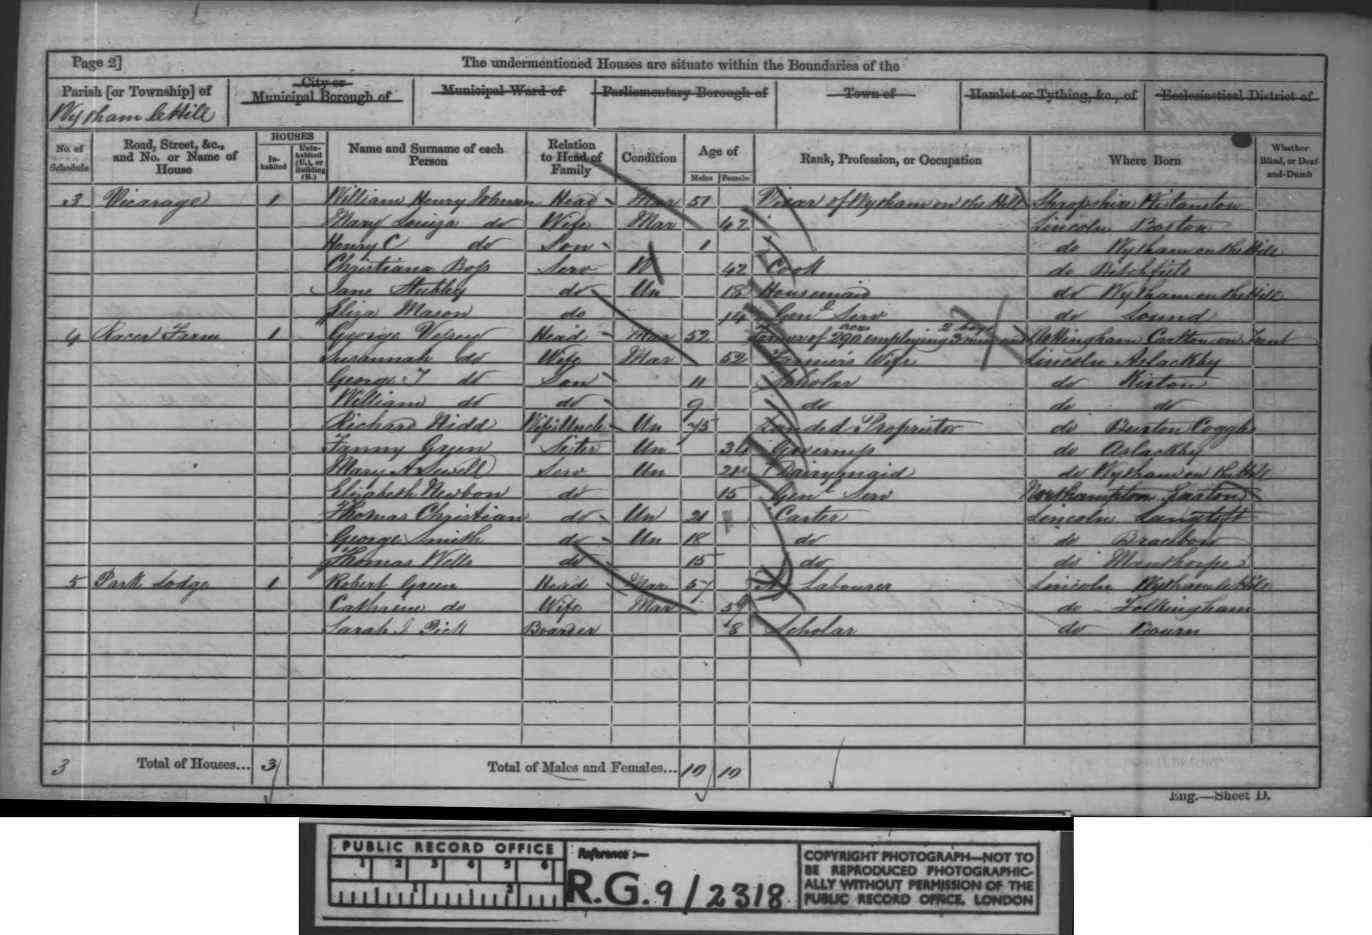 Page 2]
The undermentioned Houses are situate within the Boundaries of the
Parish [or Township] of
City or
Municipal Borough of
Municipal Ward of
Parliamentary Borough of
Town of
Hamlet or Tything, &c., of
Ecclesiastical District of
Wytham le Hill
No. of Schedule
Road, Street, &c., and No. or Name of House
HOUSES
In-habited
Unin-habited (U.), or Building (B.)
Name and Surname of each Person
Relation to Head of Family
Condition
Age of
Males
Females
Rank, Profession, or Occupation
Where Born
Whether Blind, or Deaf-and-Dumb
3 Vicarage 1 William Henry Johnson Head Mar 51 Vicar of Wytham on the Hill Shropshire
Mary Louiza do Wife Mar 42 Lincoln Boston
Henry C do Son 1 do Wytham on the Hill
Christiana Serv W 42 Cook do Bitchfield
Jane Stubley do Un 18 Housemaid do Wytham on the Hill
Eliza Mason do 14 Genl Serv do Lound
4 Farm 1 George Head Mar 52 Farmer of 290 acres employing 3 men and 2 boys Carlton on Trent
Susannah do Wife Mar 52 Farmer's Wife Lincoln Aslackby
George T do Son 11 Scholar do Kirton
William do do 9 do do do
Richard Nidd Un 75 Landed Proprietor do Burton Coggles
Fanny Green Sister Un do Aslackby
Mary A Sewell Serv Un Dairymaid do Wytham on the Hill
Elizabeth Newbon do 15 Genl Serv Northampton Easton
Thomas Christian do Un 21 Carter Lincoln Langtoft
George Smith do Un 18 do do
Thomas Wells do 15 do do Manthorpe
5 Park Lodge 1 Robert Green Head Mar 57 Labourer Lincoln Wytham le Hill
Catherine do Wife Mar 59 do Folkingham
Sarah J Pick Boarder 8 Scholar do Bourn
3 Total of Houses... 3 Total of Males and Females... 10 10
Eng.—Sheet D.
PUBLIC RECORD OFFICE
1 2 3 4 5 6
1 2
Reference :—
R.G. 9/2318
COPYRIGHT PHOTOGRAPH—NOT TO
BE REPRODUCED PHOTOGRAPHIC-
ALLY WITHOUT PERMISSION OF THE
PUBLIC RECORD OFFICE, LONDON